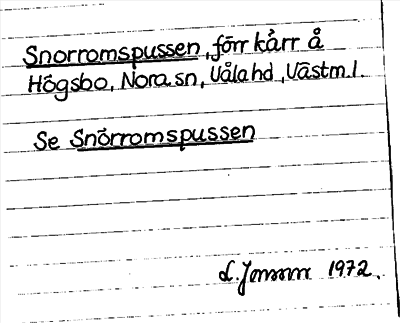 Snorromspussen, förr kärr å
Högsbo, Nora sn, Våla hd, Västm.l.
Se Snörromspussen
L. Jonsson 1972.